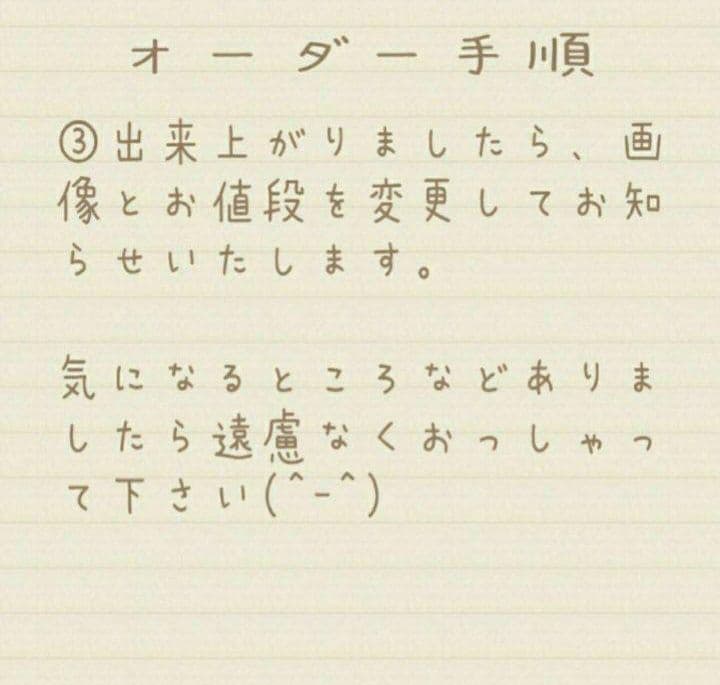 オーダー手順
③出来上がりましたら、画
像とお値段を変更してお知
らせいたします。
気になるところなどありま
したら遠慮なくおっしゃっ
て下さい(^-^)